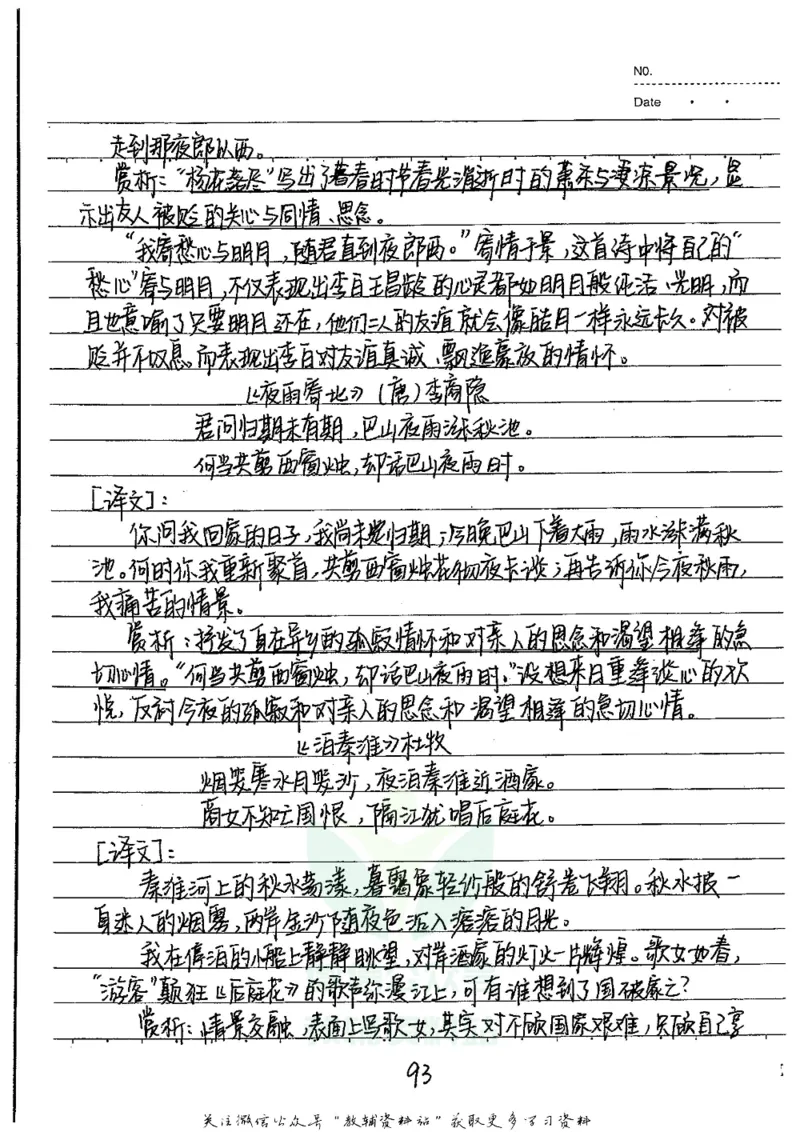 NO.
Date
走到那夜郎以西。
赏析:“杨花落尽”写出了暮春时节春光消逝时的萧条与凄凉景况,显
示出友人被贬的关心与同情、思念。
“我寄愁心与明月,随君直到夜郎西。”寄情于景,这首诗中将自己的“
愁心”寄与明月,不仅表现出李白王昌龄的心灵都如明月般纯洁、光明,而
且也意喻了只要明月还在,他们二人的友谊就会像皓月一样永远长久。对被
贬并不叹息。而表现出李白对友谊真诚、飘逸豪放的情怀。
《夜雨寄北》(唐)李商隐
君问归期未有期,巴山夜雨涨秋池。
何当共剪西窗烛,却话巴山夜雨时。
[译文]:
你问我回家的日子,我尚未定归期;今晚巴山下着大雨,雨水涨满秋
池。何时你我重新聚首,共剪西窗烛花彻夜长谈;再告诉你今夜秋雨,
我痛苦的情景。
赏析:抒发了自在异乡的孤寂情怀和对亲人的思念和渴望相逢的急
切心情。“何当共剪西窗烛,却话巴山夜雨时。”设想来日重逢谈心的欢
悦,反衬今夜的孤寂和对亲人的思念和渴望相逢的急切心情。
《泊秦淮》杜牧
烟笼寒水月笼沙,夜泊秦淮近酒家。
商女不知亡国恨,隔江犹唱后庭花。
[译文]:
秦淮河上的秋水荡漾,暮霭象轻纱般的舒卷飞翔。秋水披一
身迷人的烟雾,两岸金沙随夜色沉入溶溶的月光。
我在停泊的小船上静静眺望,对岸酒家的灯火一片辉煌。歌女如春,
“游客”颠狂《后庭花》的歌声弥漫江上,可有谁想到了国破家亡?
赏析:情景交融,表面上写歌女,其实对不顾国家艰难,只顾自己享
93
关注微信公众号“教辅资料站”获取更多学习资料